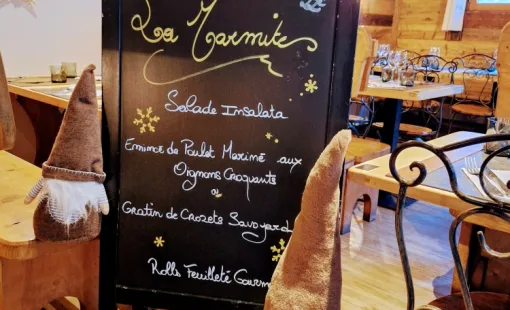 La Marmite
Salade Insalata
Emincé de Poulet Mariné aux
Oignons Craquants
ou
Gratin de Crozets Savoyard
Rolls Feuilleté Gourm